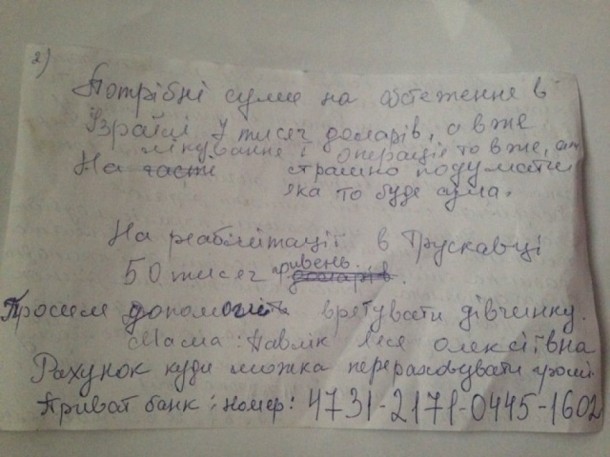 2)
Потрібні суми на обстеження в
Ізраїлі 7 тисяч доларів, а вже
лікування і операція то вже, аж
На части страшно подумати
яка то буде сума.
На реабілітації в Трускавці
50 тисяч гривень. доларів.
Просим допомогти врятувати дівчинку.
Мама: Павлік Леся Олексіївна
Рахунок куди можка перераховувати гроші.
Приват банк: номер: 4731-2171-0445-1602